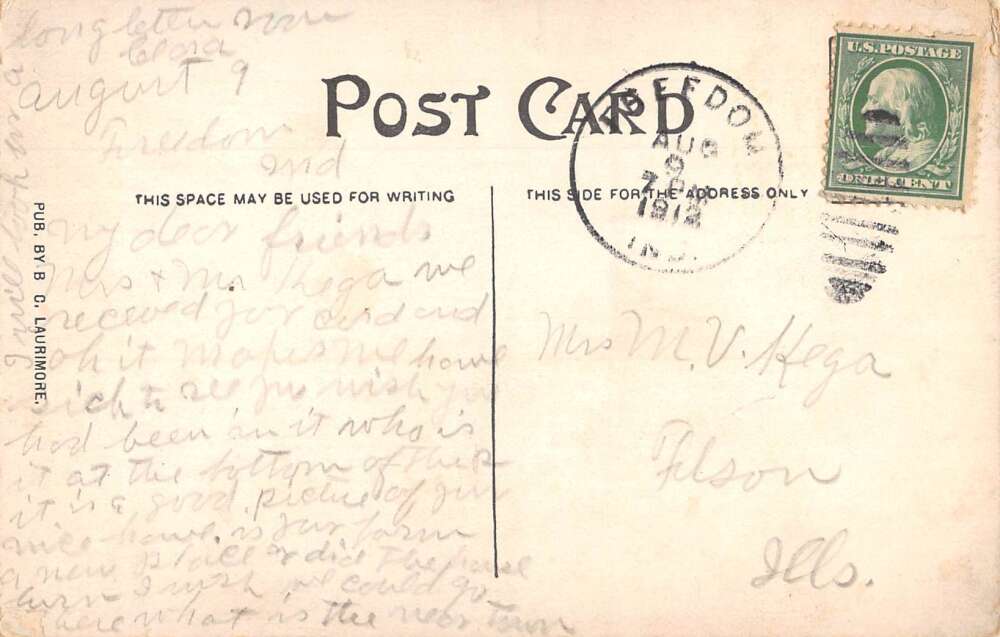 long letter soon
Clara
August 9
Freedom
Ind
POST CARD
THIS SPACE MAY BE USED FOR WRITING
THIS SIDE FOR THE ADDRESS ONLY
PUB. BY B C. LAURIMORE.
FREEDOM
AUG
9
1912
IND.
U.S. POSTAGE
ONE CENT
My dear friends
Mrs & Mr Hega we
received your card and
oh it makes me home
sick to see you wish you
had been in it who is
it at the bottom of the
it is a good picture of your
nice home. is your farm
a new place or did the house
burn I wish we could go
there what is the near town
Mrs M. V. Hega
Filson
Ills.